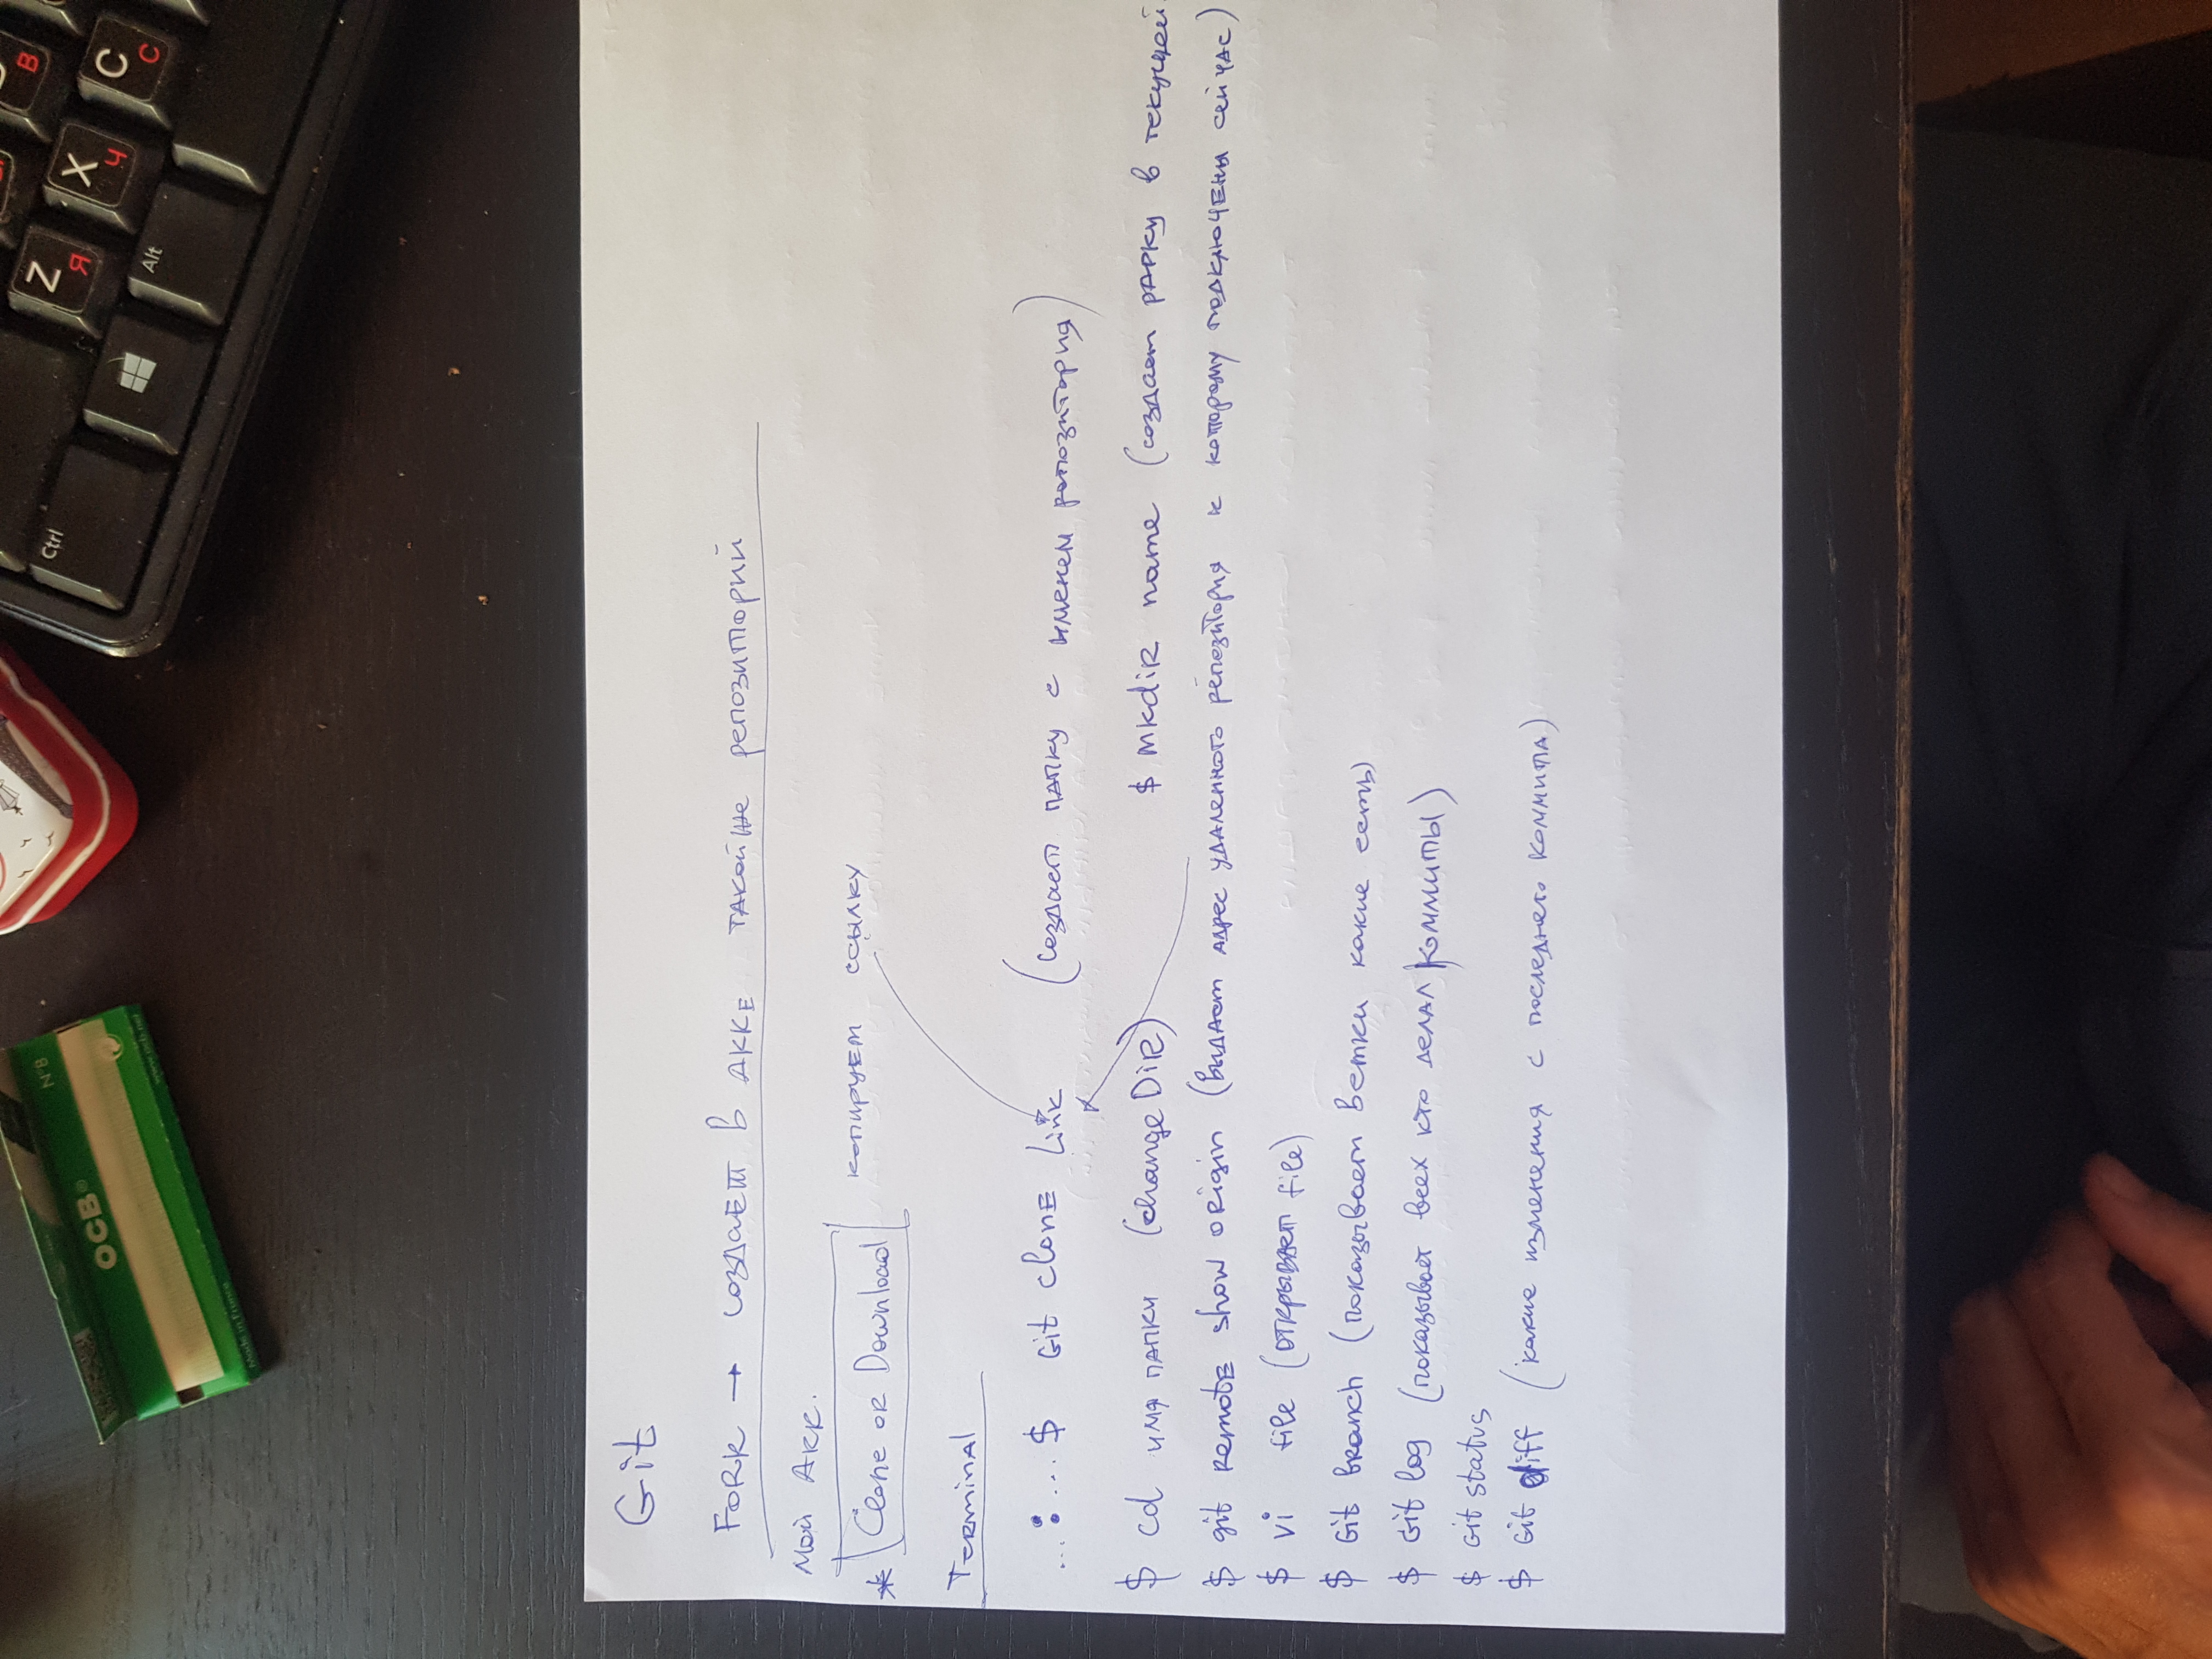 OCB
N°8
www.ocb.net
Made in France
Ctrl
Alt
Z Я
X Ч
C С
В
Git
FORK → создаёт в АККЕ такой же репозиторий
Мой Акк.
* Clone or Download копируем ссылку
Terminal
...:...$ Git clone link (создаёт папку с именем репозитория)
$ cd имя папки (change DiR) $ mkdir name (создаёт рарку в текущей
$ git remote show origin (выдаёт адрес удаленного репозитория к которому подключены сейчас)
$ vi file (открывает file)
$ Git branch (показывает ветки какие есть)
$ Git log (показывает всех кто делал коммиты)
$ Git status
$ Git diff (какие изменения с последнего коммита)